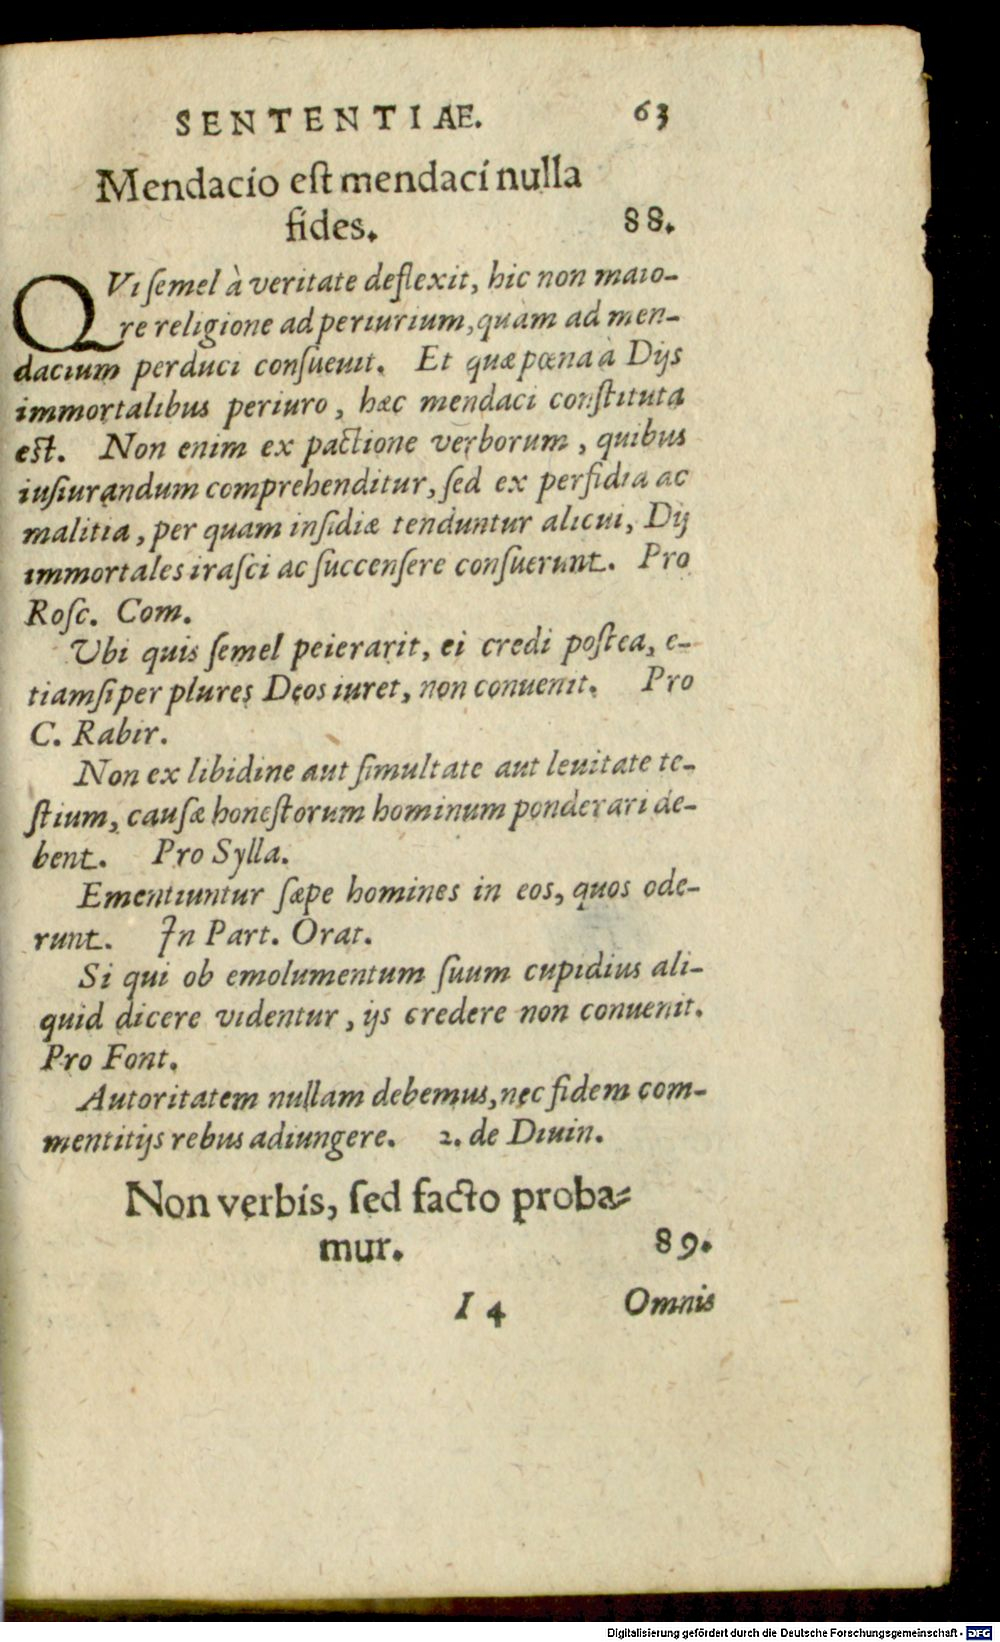 SENTENTIAE. 63
Mendacio eſt mendaci nulla
fides. 88.
QVi ſemel à veritate deflexit, hic non maio-
re religione ad periurium, quàm ad men-
dacium perduci conſueuit. Et quæ pœna à Dijs
immortalibus periuro, hæc mendaci conſtituta
eſt. Non enim ex pactione verborum, quibus
iuſiurandum comprehenditur, ſed ex perfidia ac
malitia, per quam inſidiæ tenduntur alicui, Dij
immortales iraſci ac ſuccenſere conſuerunt. Pro
Roſc. Com.
Vbi quis ſemel peierarit, ei credi poſtea, e-
tiamſi per plures Deos iuret, non conuenit. Pro
C. Rabir.
Non ex libidine aut ſimultate aut leuitate te-
ſtium, cauſæ honeſtorum hominum ponderari de-
bent. Pro Sylla.
Ementiuntur ſæpe homines in eos, quos ode-
runt. In Part. Orat.
Si qui ob emolumentum ſuum cupidius ali-
quid dicere videntur, ijs credere non conuenit.
Pro Font.
Autoritatem nullam debemus, nec fidem com-
mentitijs rebus adiungere. 2. de Diuin.
Non verbis, ſed facto proba-
mur. 89.
I 4 Omnis
Digitalisierung gefördert durch die Deutsche Forschungsgemeinschaft - DFG